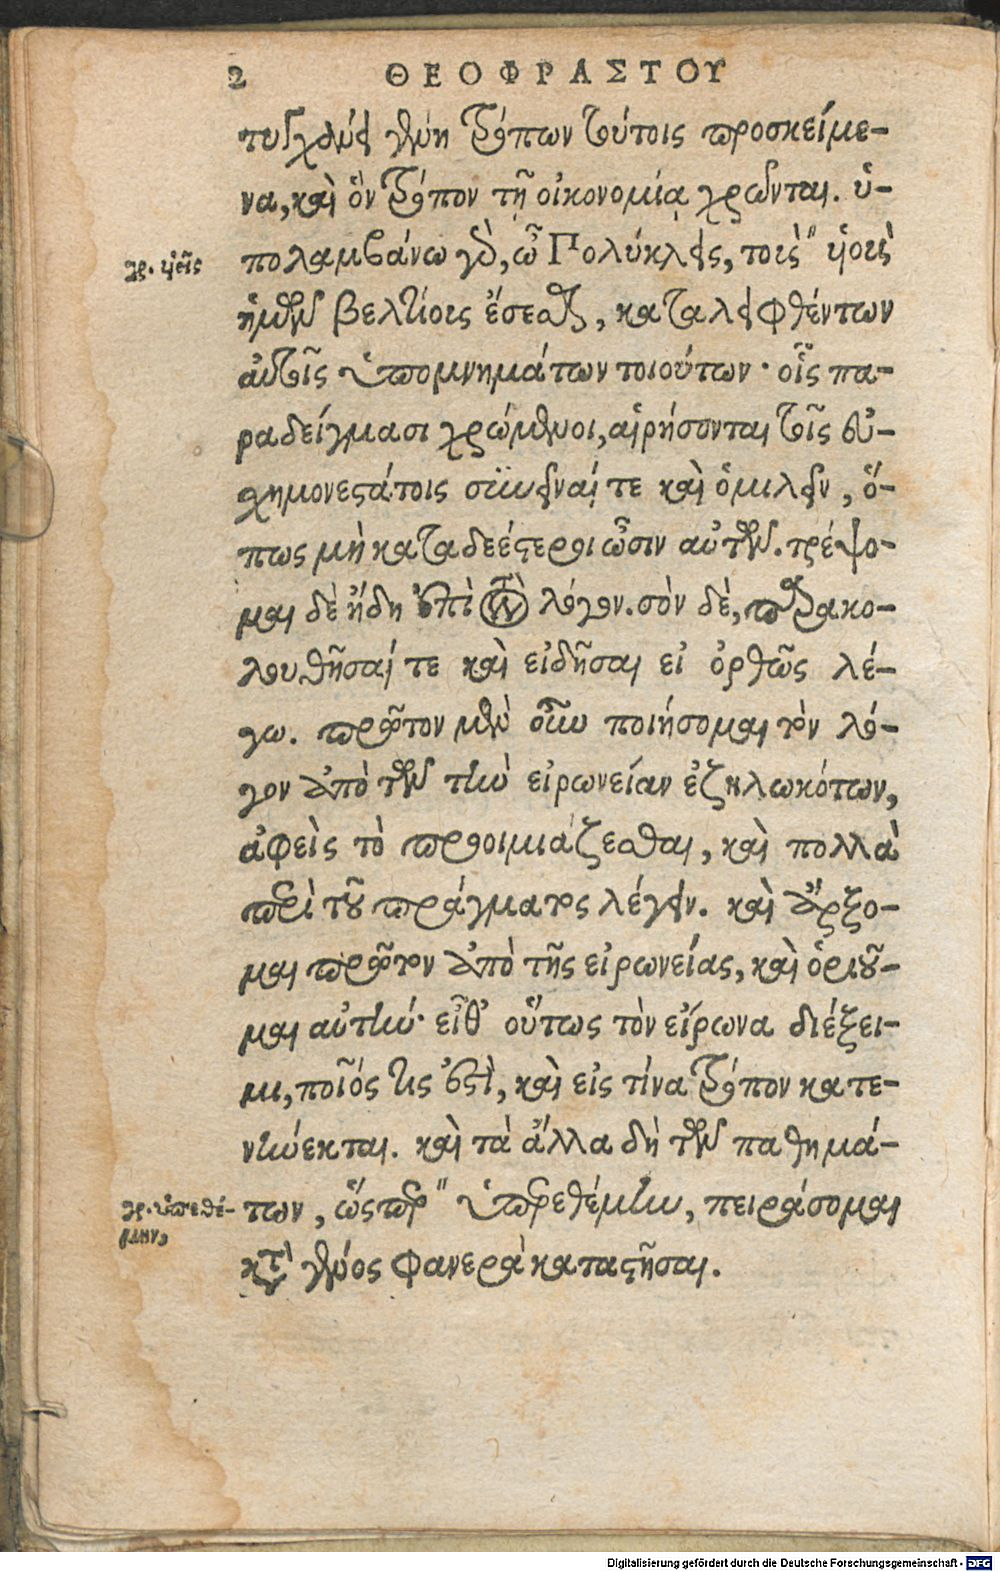 2 ΘΕΟΦΡΑΣΤΟΥ
τυγχάνει γένη τρόπων τούτοις προσκείμε-
να, καὶ ὃν τρόπον τῇ οἰκονομίᾳ χρῶνται. ὑ-
πολαμβάνω γὸ, ὦ Πολύκλεις, τοὶς" ὑοὶς
γρ. υἱεῖς
ἡμῶν βελτίοις ἔσεσθς, καταλειφθέντων
αὐτοῖς ὑπομνημάτων τοιούτων· οἷς πα-
ραδείγμασι χρώμενοι, αἱρήσονται τοῖς εὐ-
σχημονεστάτοις συνεῖναί τε καὶ ὁμιλεῖν, ὅ-
πως μὴ καταδεέστεροι ὦσιν αὐτῶν. τρέψο-
μαι δὲ ἤδη ἐπὶ τὸν λόγον. σὸν δὲ, παρακο-
λουθῆσαί τε καὶ εἰδῆσαι εἰ ὀρθῶς λέ-
γω. πρῶτον μὲν οὖν ποιήσομαι τὸν λό-
γον ἀπὸ τῶν τὴν εἰρωνείαν ἐζηλωκότων,
ἀφεὶς τὸ προοιμιάζεσθαι, καὶ πολλὰ
περὶ τοῦ πράγματος λέγειν. καὶ ἄρξο-
μαι πρῶτον ἀπὸ τῆς εἰρωνείας, καὶ ὁριοῦ-
μαι αὐτήν· εἶθ' οὕτως τὸν εἴρωνα διέξει-
μι, ποῖός τις ἐστὶ, καὶ εἰς τίνα τρόπον κατε-
νήνεκται. καὶ τὰ ἄλλα δὴ τῶν παθημά-
των, ὥσπερ" ὑπερεθέμην, πειράσομαι
γρ. ὑπεθέ-
μην,
κατὰ γένος φανερὰ καταστῆσαι.
Digitalisierung gefördert durch die Deutsche Forschungsgemeinschaft - DFG